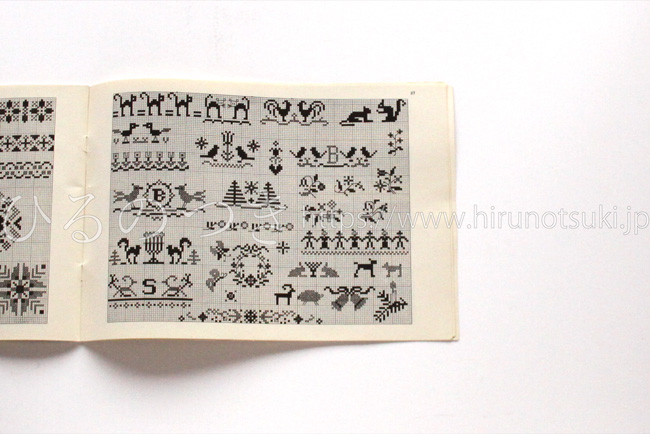 B
E
ひるのつき https://www.hirunotsuki.jp
S